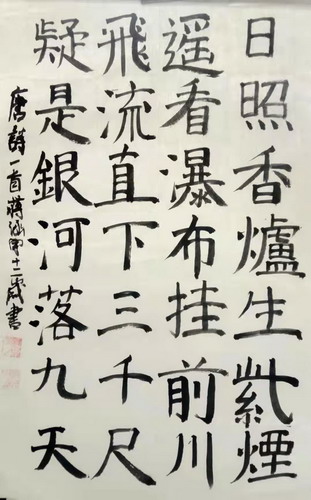 日照香爐生紫煙
遥看瀑布挂前川
飛流直下三千尺
疑是銀河落九天
唐詩一首蔣 十二歲書